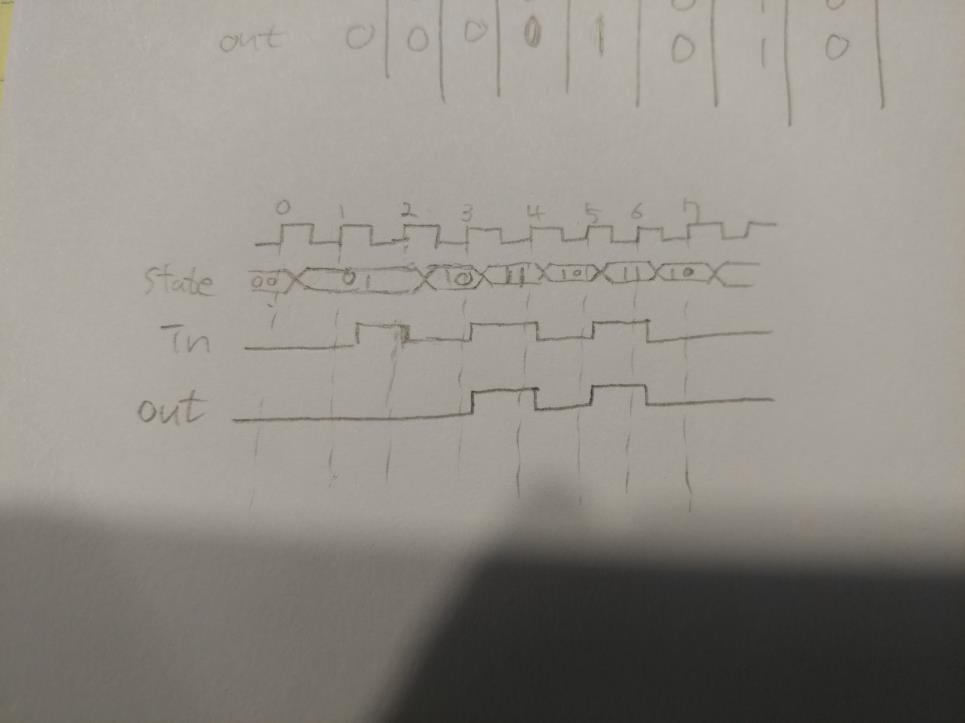 out 0 0 0 0 1 0 1 0
0 1 2 3 4 5 6 7
State 00 01 10 11 10 11 10
In
out